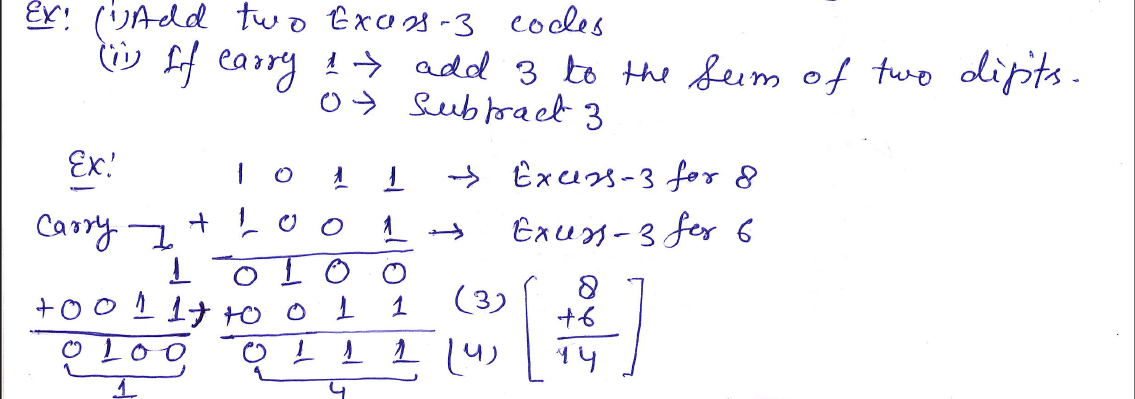 Ex: (i) Add two Excess-3 codes
(ii) If carry 1 → add 3 to the sum of two digits.
0 → Subtract 3
Ex:
1 0 1 1 → Excess-3 for 8
Carry + 1 0 0 1 → Excess-3 for 6
1 0 1 0 0
+0 0 1 1 + +0 0 1 1 (3) [ 8
+6
0 1 0 0 0 1 1 1 (4) 14 ]
1 4